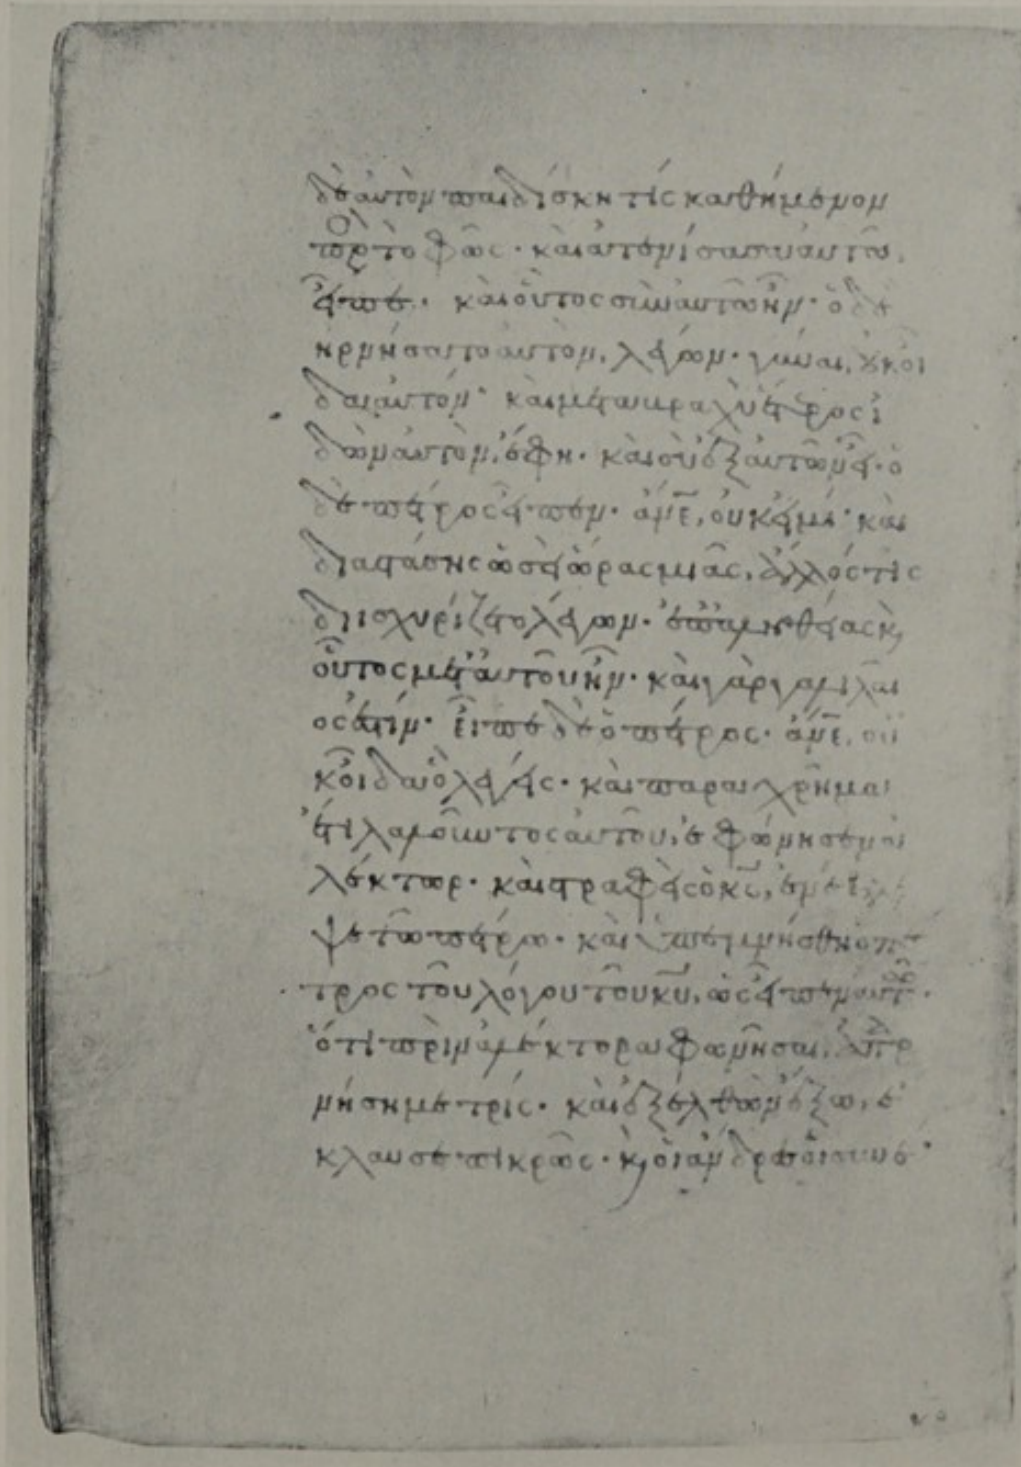 δὲ αὐτὸν παιδίσκη τίς καθήμενον
πρὸ τὸ φῶς· καὶ ἀτενίσασα αὐτῶ,
εἶπε· καὶ οὗτος σὺν αὐτῶ ἦν· ὁ δὲ
ἠρνήσατο αὐτὸν, λέγων· γύναι, οὐκ οἶ
δα αὐτόν· καὶ μετὰ βραχὺ ἕτερος ἰ
δὼν αὐτὸν, ἔφη· καὶ σὺ ἐξ αὐτῶν εἶ· ὁ
δὲ πέτρος εἶπεν· ἄνε, οὐκ εἰμί· καὶ
διαστάσης ὡσεὶ ὥρας μιᾶς, ἄλλός τις
διισχυρίζετο λέγων· ἐπ' ἀληθείας κ
οὗτος μετ' αὐτοῦ ἦν· καὶ γὰρ γαλιλαῖ
ος ἐστίν· εἶπε δὲ ὁ πέτρος· ἄνε, οὐ
κ οἶδα ὃ λέγεις· καὶ παραχρῆμα
ἔτι λαλοῦντος αὐτοῦ, ἐφώνησεν ἀ
λέκτωρ· καὶ στραφεὶς ὁ κς, ἐνέβλε
ψε τῶ πέτρω· καὶ ὑπεμνήσθη ὁ πέ
τρος τοῦ λόγου τοῦ κυ, ὡς εἶπεν αὐτῶ·
ὅτι πρὶν ἀλέκτορα φωνῆσαι, ἀπαρ
νήση με τρίς· καὶ ἐξελθὼν ἔξω, ἔ
κλαυσε πικρῶς· κ οἱ ἄνδρες οἱ συνέ